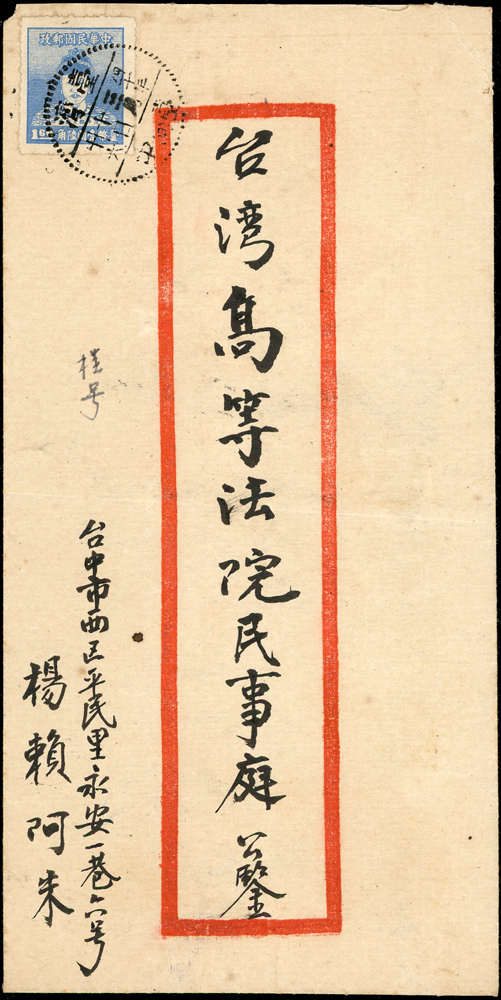 政郵國民華中
台湾高等法院民事庭 公鑒
掛号
台中市西区平民里永安一巷六号
楊賴阿朱